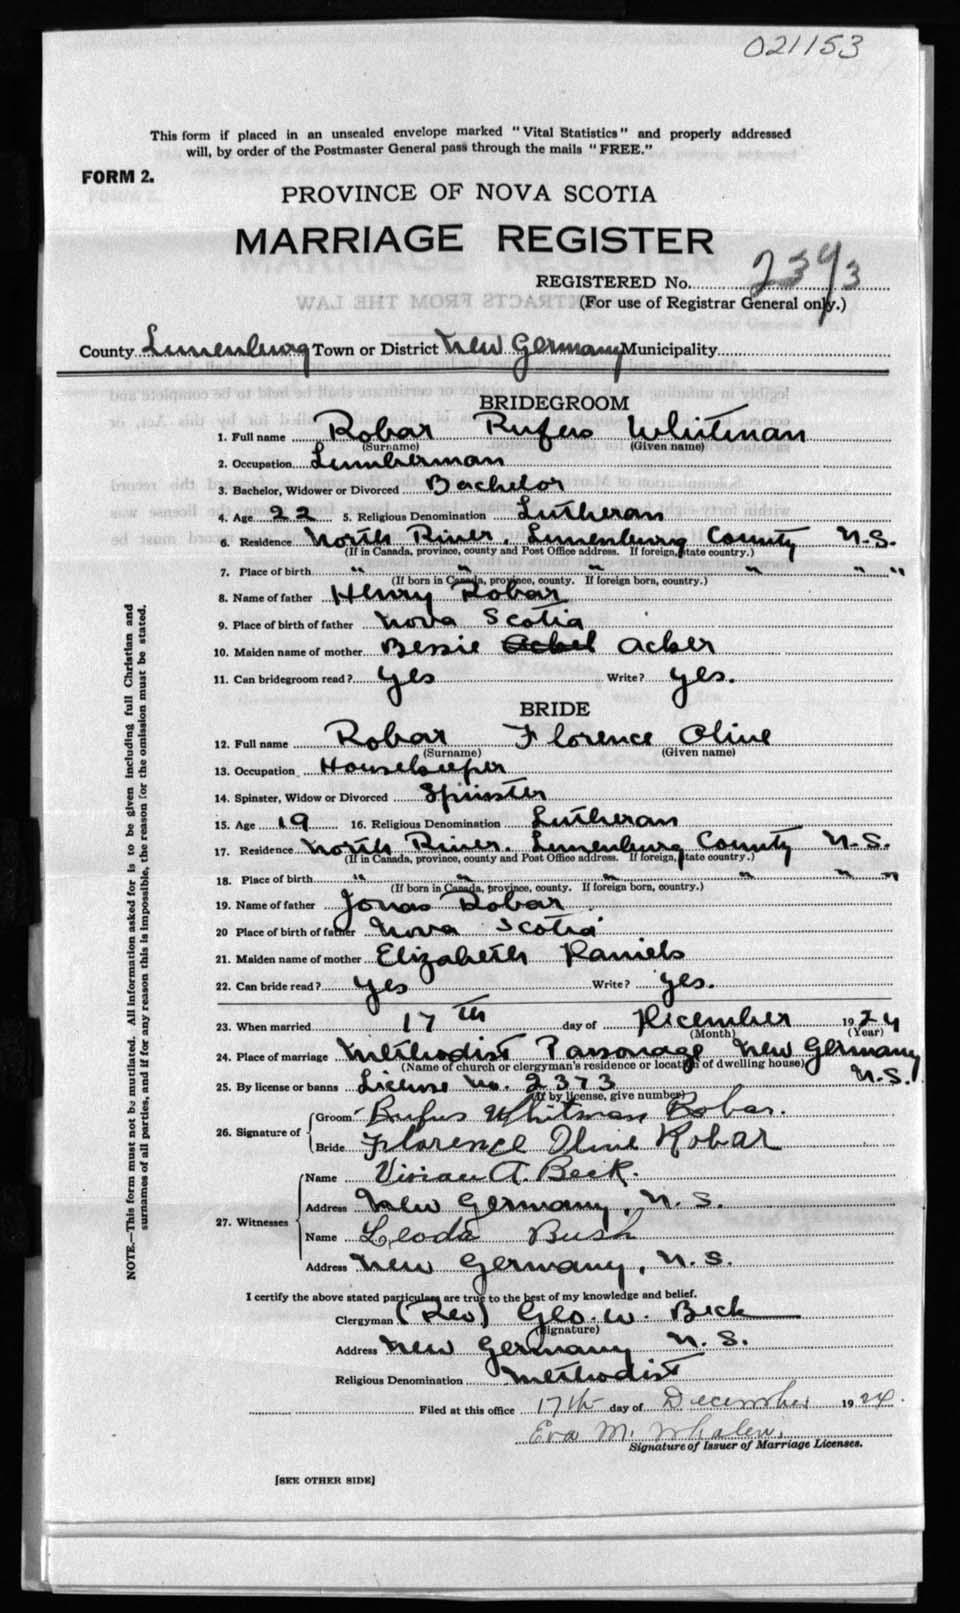 021153
This form if placed in an unsealed envelope marked "Vital Statistics" and properly addressed
will, by order of the Postmaster General pass through the mails "FREE."
FORM 2.
PROVINCE OF NOVA SCOTIA
MARRIAGE REGISTER
REGISTERED No. 2373
(For use of Registrar General only.)
County Lunenburg Town or District New Germany Municipality
BRIDEGROOM
1. Full name Robar Rufus Whitman
(Surname) (Given name)
2. Occupation Lumberman
3. Bachelor, Widower or Divorced Bachelor
4. Age 22 5. Religious Denomination Lutheran
6. Residence North River, Lunenburg County N.S.
(If in Canada, province, county and Post Office address. If foreign, state country.)
7. Place of birth " " " " " "
(If born in Canada, province, county. If foreign born, country.)
8. Name of father Henry Robar
9. Place of birth of father Nova Scotia
10. Maiden name of mother Bessie Acker
11. Can bridegroom read? yes Write? yes.
BRIDE
12. Full name Robar Florence Oline
(Surname) (Given name)
13. Occupation Housekeeper
14. Spinster, Widow or Divorced Spinster
15. Age 19 16. Religious Denomination Lutheran
17. Residence North River, Lunenburg County N.S.
(If in Canada, province, county and Post Office address. If foreign, state country.)
18. Place of birth " " " " " "
(If born in Canada, province, county. If foreign born, country.)
19. Name of father Jonas Robar
20 Place of birth of father Nova Scotia
21. Maiden name of mother Elizabeth Daniels
22. Can bride read? yes Write? yes.
23. When married 17th day of December 1924
(Month) (Year)
24. Place of marriage Methodist Parsonage New Germany
(Name of church or clergyman's residence or location of dwelling house) N.S.
25. By license or banns License No. 2373
(If by license, give number)
26. Signature of Groom Rufus Whitman Robar.
Bride Florence Oline Robar
27. Witnesses Name Vivian A. Beck.
Address New Germany, N.S.
Name Leoda Bush
Address New Germany, N.S.
I certify the above stated particulars are true to the best of my knowledge and belief.
Clergyman (Rev) Geo. W. Beck
(Signature)
Address New Germany N.S.
Religious Denomination Methodist
Filed at this office 17th day of December 1924.
Eva M. Whalen.
Signature of Issuer of Marriage Licenses.
[SEE OTHER SIDE]
NOTE.—This form must not be mutilated. All information asked for is to be given including full Christian and
surnames of all parties, and if for any reason this is impossible, the reason for the omission must be stated.